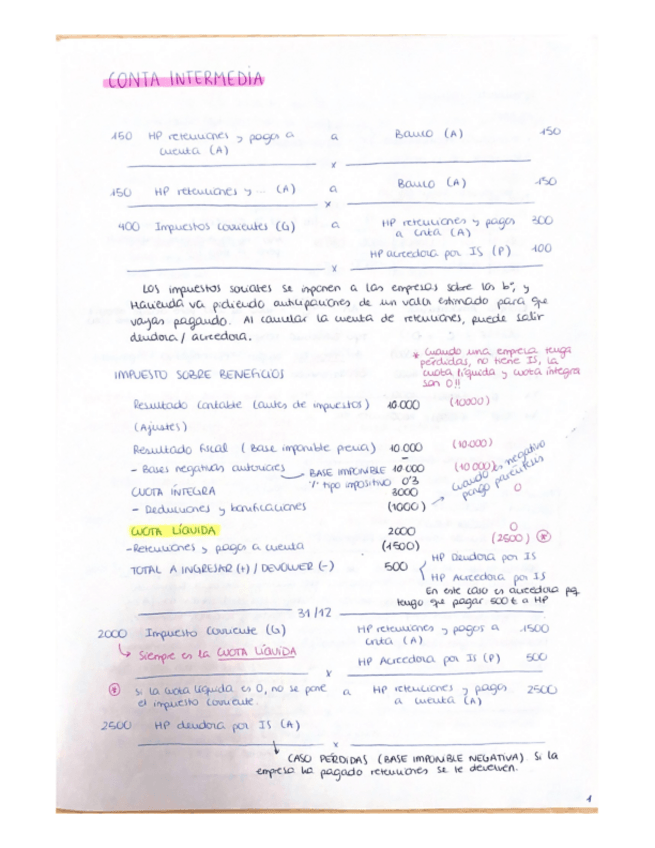 CONTA INTERMEDIA
150 HP retenciones y pagos a a Banco (A) 150
cuenta (A)
x
150 HP retenciones y -- (A) a Banco (A) 150
x
400 Impuestos corrientes (G) a HP retenciones y pagos 300
a cnta (A)
HP acreedora por IS (P) 100
x
Los impuestos sociales se imponen a las empresas sobre los bº, y
Hacienda va pidiendo anticipaciones de un valor estimado para que
vayas pagando. Al cancelar la cuenta de retenciones, puede salir
deudora / acreedora.
* Cuando una empresa tenga
pérdidas, no tiene IS, la
cuota líquida y cuota íntegra
son 0!!
IMPUESTO SOBRE BENEFICIOS
Resultado contable (antes de impuestos) 10.000 (10000)
(Ajustes)
Resultado fiscal (Base imponible previa) 10.000 (10.000)
- Bases negativas anteriores — BASE IMPONIBLE 10.000 (10.000)
% tipo impositivo 0'3
cuando es negativo
pongo paréntesis
CUOTA ÍNTEGRA 3000 0
- Deducciones y bonificaciones (1000)
CUOTA LÍQUIDA 2000 0
- Retenciones y pagos a cuenta (1500) (2500) *
TOTAL A INGRESAR (+) / DEVOLVER (-) 500
HP Deudora por IS
HP Acreedora por IS
En este caso es acreedora pq
tengo que pagar 500 € a HP
31/12
2000 Impuesto corriente (G) HP retenciones y pagos a 1500
cnta (A)
↳ Siempre es la CUOTA LÍQUIDA
HP Acreedora por IS (P) 500
x
* Si la cuota líquida es 0, no se pone a HP retenciones y pagos 2500
el impuesto corriente. a cuenta (A)
2500 HP deudora por IS (A)
x
CASO PÉRDIDAS (BASE IMPONIBLE NEGATIVA). Si la
empresa ha pagado retenciones se le devuelven.
1